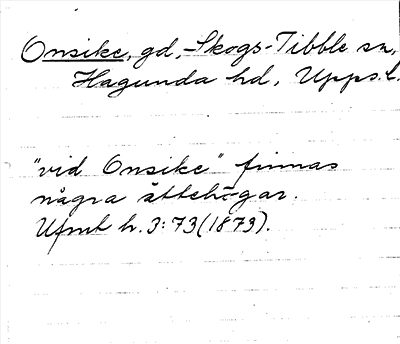 Onsike, gd, Skogs-Tibble sn,
Hagunda hd, Upps.l.
"vid Onsike" finnas
några ättehögar.
Ufmt h.3:73(1873).